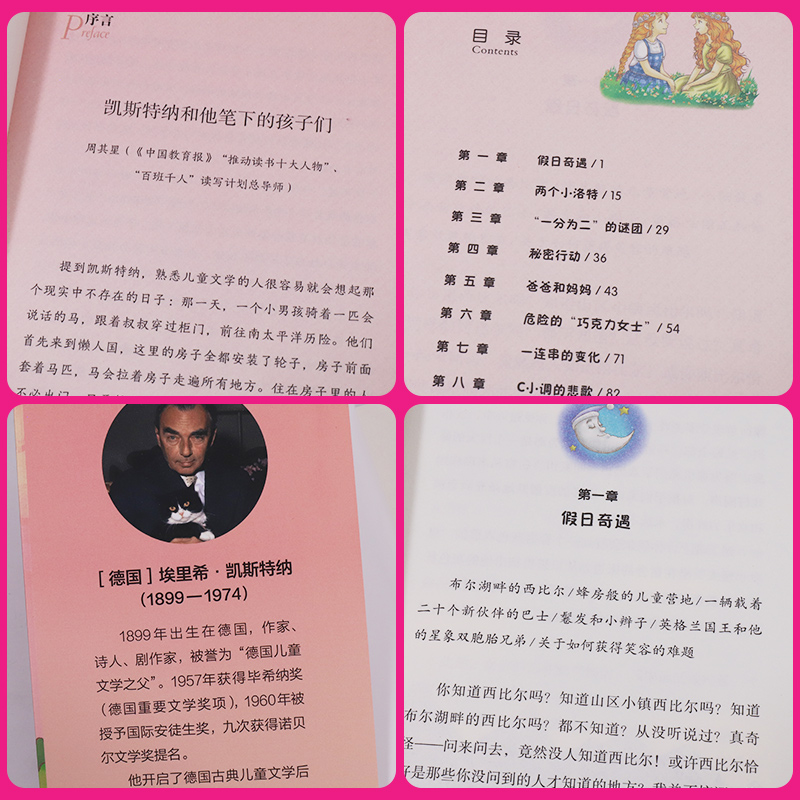 序言
Preface
凯斯特纳和他笔下的孩子们
周其星（《中国教育报》“推动读书十大人物”、
“百班千人”读写计划总导师）
提到凯斯特纳，熟悉儿童文学的人很容易就会想起那
个现实中不存在的日子：那一天，一个小男孩骑着一匹会
说话的马，跟着叔叔穿过柜门，前往南太平洋历险。他们
首先来到懒人国，这里的房子全都安装了轮子，房子前面
套着马匹，马会拉着房子走遍所有地方。住在房子里的人
不必出门
目 录
Contents
第 一 章 假日奇遇 / 1
第 二 章 两个小洛特 / 15
第 三 章 “一分为二”的谜团 / 29
第 四 章 秘密行动 / 36
第 五 章 爸爸和妈妈 / 43
第 六 章 危险的“巧克力女士” / 54
第 七 章 一连串的变化 / 71
第 八 章 C小调的悲歌 / 82
［德国］埃里希·凯斯特纳
（1899—1974）
1899年出生在德国，作家、
诗人、剧作家，被誉为“德国儿童
文学之父”。1957年获得毕希纳奖
（德国重要文学奖项），1960年被
授予国际安徒生奖，九次获得诺贝
尔文学奖提名。
他开启了德国古典儿童文学后
第一章
假日奇遇
布尔湖畔的西比尔/蜂房般的儿童营地/一辆载着
二十个新伙伴的巴士/鬈发和小辫子/英格兰国王和他
的星象双胞胎兄弟/关于如何获得笑容的难题
你知道西比尔吗？知道山区小镇西比尔吗？知道
布尔湖畔的西比尔吗？都不知道？从没听说过？真奇
怪——问来问去，竟然没人知道西比尔！或许西比尔恰
好是那些你没问到的人才知道的地方？